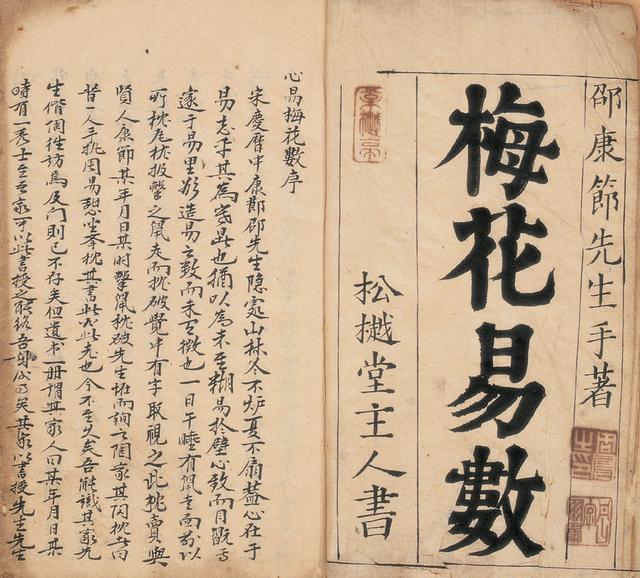 邵康節先生手著
梅花易數
松樾堂主人書
心易梅花數序
宋慶曆中康節邵先生隐處山林冬不炉夏不扇葢心在于
易忘乎其為寒暑也猶以為未至糊易於壁心致而目翫焉
邃于易理欲造易之數而未有徵也一日午睡有鼠走而前以
所枕瓦枕投擊之鼠走而枕破覺中有字取視之此枕賣與
賢人康節某年月日某時擊鼠枕破先生怪而詢之陶家其陶枕者曰
昔一人手执周易憩坐举枕其書此必此老也今不至久矣吾能識其家先
生偕陶往訪焉及門則已不存矣但遺書一冊謂其家人曰某年月日某
時有一秀士至吾家可以此書授之能終吾身矣其家以書授先生先生